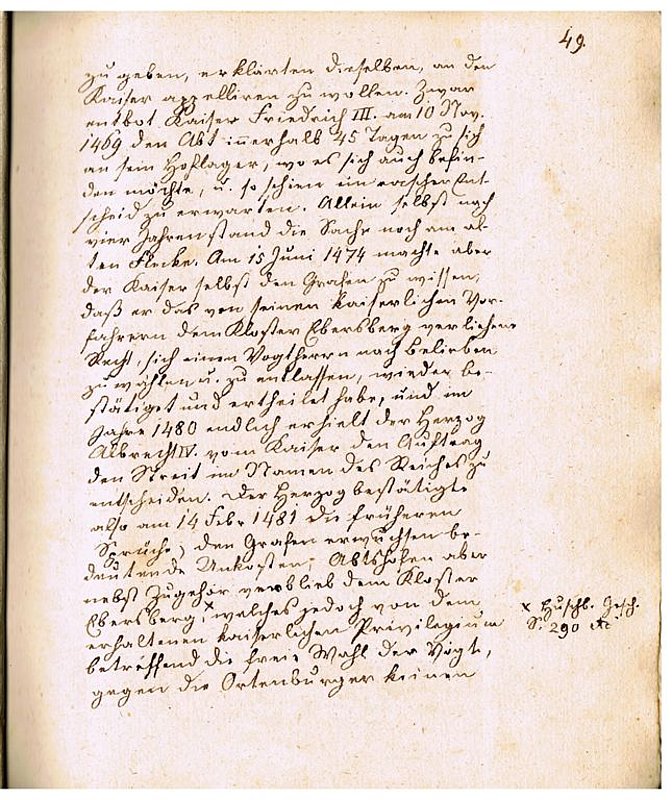 49.
zu geben, erklärten dieselben, an den
Kaiser appelliren zu wollen. Zwar
entbot Kaiser Friedrich III. am 10 Nov.
1469 den Abt iñerhalb 45 Tagen zu sich
an sein Hoflager, wo es sich auch befin-
den möchte, u. so schien ein rascher Ent-
scheid zu erwarten. Allein selbst nach
vier Jahren stand die Sache noch am al-
ten Flecke. Am 15 Juni 1474 machte aber
der Kaiser selbst den Grafen zu wissen,
daß er das von seinen kaiserlichen Vor-
fahrern dem Kloster Ebersberg verliehene
Recht, sich einen Vogtherrn nach Belieben
zu wählen u. zu entlassen, wieder be-
stätiget und ertheilet habe, und im
Jahre 1480 endlich erhielt der Herzog
Albrecht IV. vom Kaiser den Auftrag
den Streit im Namen des Reiches zu
entscheiden. Der Herzog bestätigte
also am 14 Febr 1481 die früheren
Sprüche, den Grafen erwuchsen be-
deutende Unkosten; Abtshofen aber
nebst Zugehör verblieb dem Kloster
Ebersberg,× welches jedoch von dem
erhaltenen kaiserlichen Privilegium
betreffend die freie Wahl der Vögte,
gegen die Ortenburger keinen
× Huschb. Gesch.
S. 290 etc